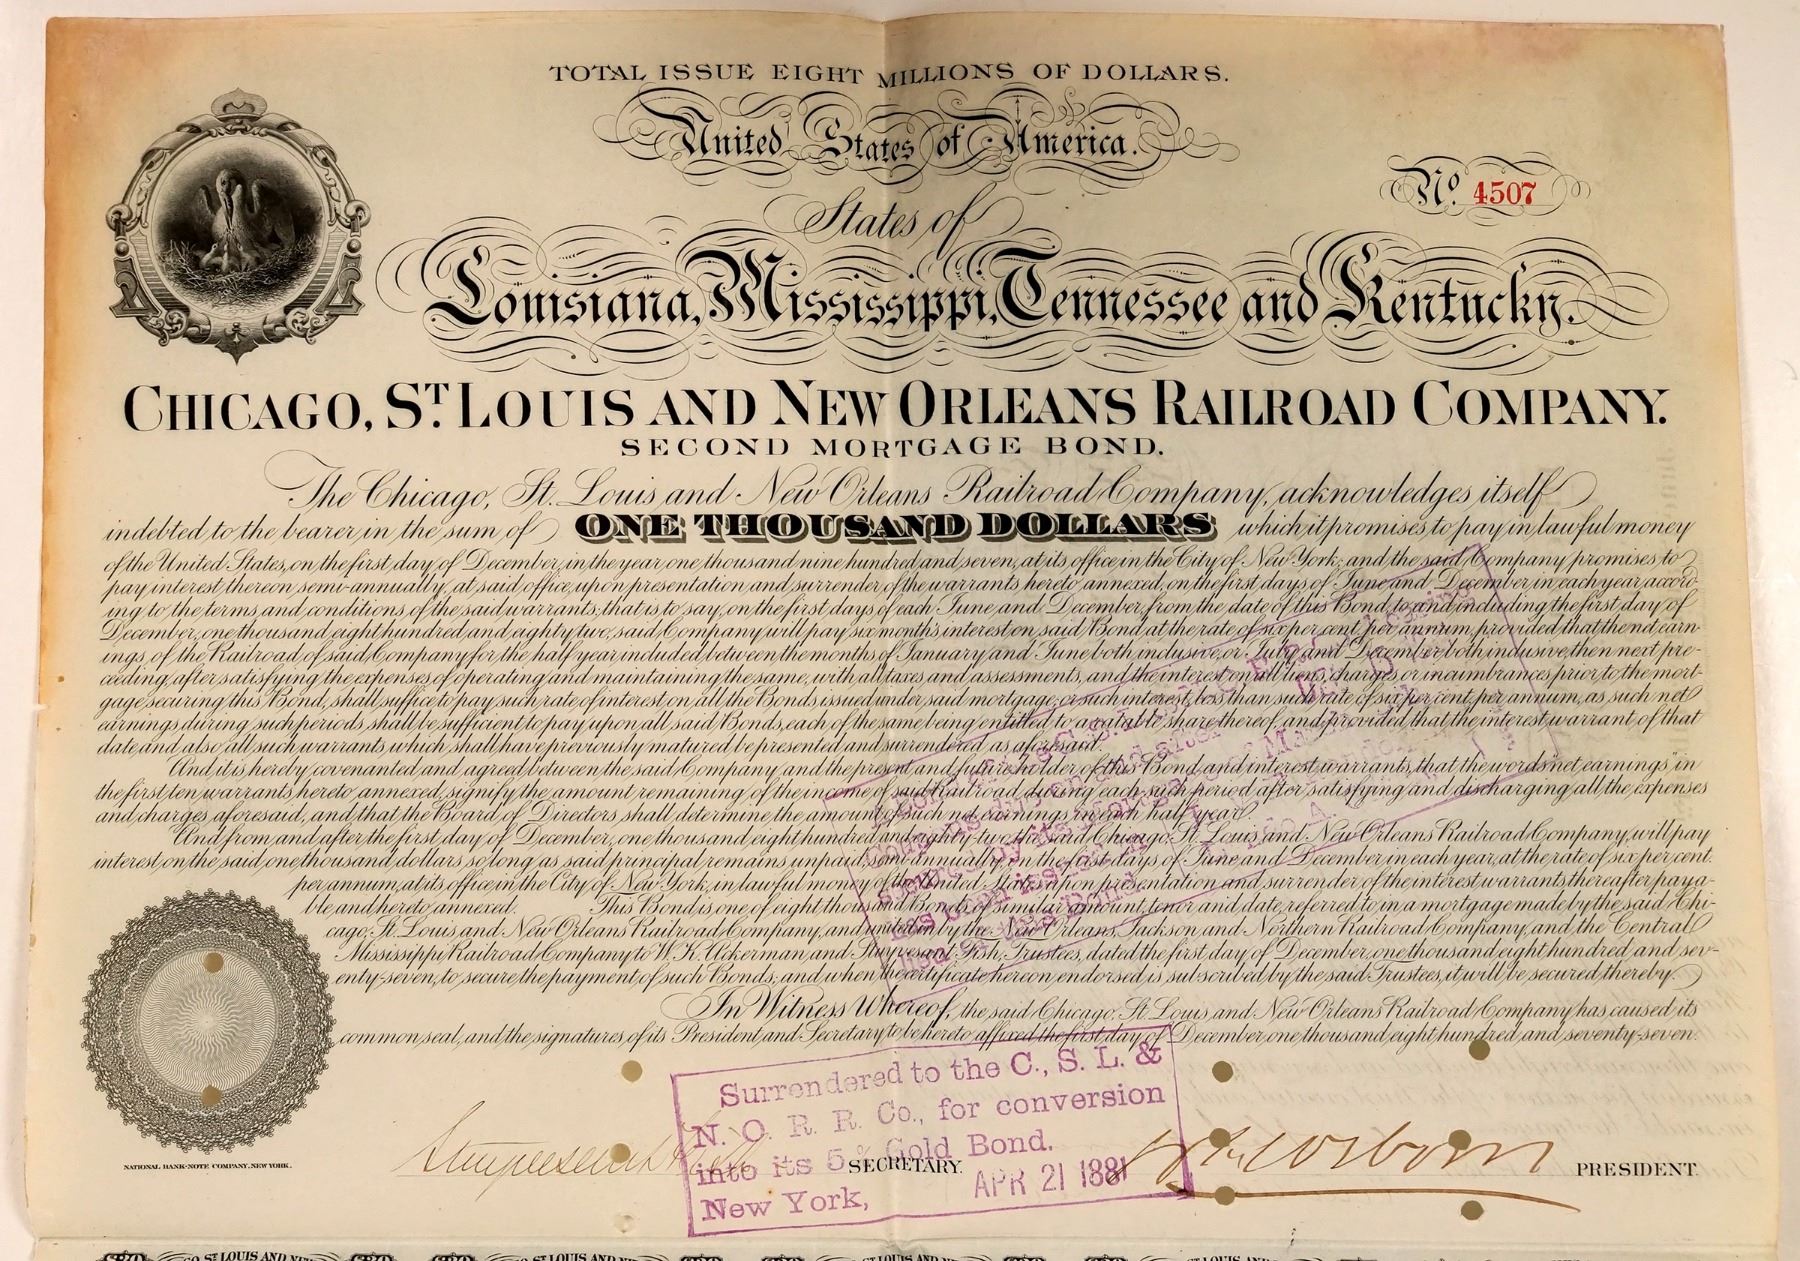 TOTAL ISSUE EIGHT MILLIONS OF DOLLARS.
United States of America.
No. 4507
States of
Louisiana, Mississippi, Tennessee and Kentucky.
CHICAGO, ST. LOUIS AND NEW ORLEANS RAILROAD COMPANY.
SECOND MORTGAGE BOND.
The Chicago, St. Louis and New Orleans Railroad Company, acknowledges itself
indebted to the bearer in the sum of ONE THOUSAND DOLLARS which it promises to pay in lawful money
of the United States, on the first day of December, in the year one thousand nine hundred and seven, at its office in the City of New York; and the said Company promises to
pay interest thereon semi-annually, at said office, upon presentation and surrender of the warrants hereto annexed, on the first days of June and December in each year, accord-
ing to the terms and conditions of the said warrants; that is to say, on the first days of each June and December, from the date of this Bond, to and including the first day of
December, one thousand eight hundred and eighty two, said Company will pay six months interest on said Bond at the rate of six per cent. per annum, provided that the net earn-
ings, of the Railroad of said Company for the half year included between the months of January and June both inclusive, or July and December both inclusive, then next pre-
ceding, after satisfying the expenses of operating and maintaining the same, with all taxes and assessments, and the interest on all liens, charges or incumbrances prior to the mort-
gage securing this Bond, shall suffice to pay such rate of interest on all the Bonds issued under said mortgage, or such interest, less than such rate of six per cent. per annum, as such net
earnings during such periods shall be sufficient to pay upon all said Bonds, each of the same being entitled to a ratable share thereof, and provided that the interest warrant of that
date, and also all such warrants which shall have previously matured be presented and surrendered as aforesaid.
And it is hereby covenanted and agreed between the said Company and the present and future holder of this Bond and interest warrants, that the words "net earnings" in
the first ten warrants hereto annexed, signify the amount remaining of the income of said Railroad, during each such period after satisfying and discharging all the expenses
and charges aforesaid, and that the Board of Directors shall determine the amount of such net earnings in each half year.
And from and after the first day of December, one thousand eight hundred and eighty-two the said Chicago, St. Louis and New Orleans Railroad Company, will pay
interest on the said one thousand dollars so long as said principal remains unpaid, semi-annually, on the first days of June and December in each year, at the rate of six per cent.
per annum, at its office in the City of New York, in lawful money of the United States upon presentation and surrender of the interest warrants thereafter paya-
ble, and hereto annexed. This Bond is one of eight thousand Bonds of similar amount, tenor and date, referred to in a mortgage made by the said Chi-
cago, St. Louis and New Orleans Railroad Company, and united in by the New Orleans, Jackson and Northern Railroad Company, and the Central
Mississippi Railroad Company to W. K. Ackerman and Stuyvesant Fish, Trustees, dated the first day of December, one thousand eight hundred and sev-
enty-seven, to secure the payment of such Bonds; and when the certificate hereon endorsed is subscribed by the said Trustees, it will be secured thereby.
In Witness Whereof, the said Chicago, St. Louis and New Orleans Railroad Company has caused its
common seal, and the signatures of its President and Secretary to be hereto affixed the first day of December, one thousand eight hundred and seventy-seven.
Surrendered to the C., S. L. &
N. O. R. R. Co., for conversion
into its 5 % Gold Bond.
New York, APR 21 1881
Stuyvesant Fish SECRETARY.
PRESIDENT.
NATIONAL BANK-NOTE COMPANY, NEW YORK.